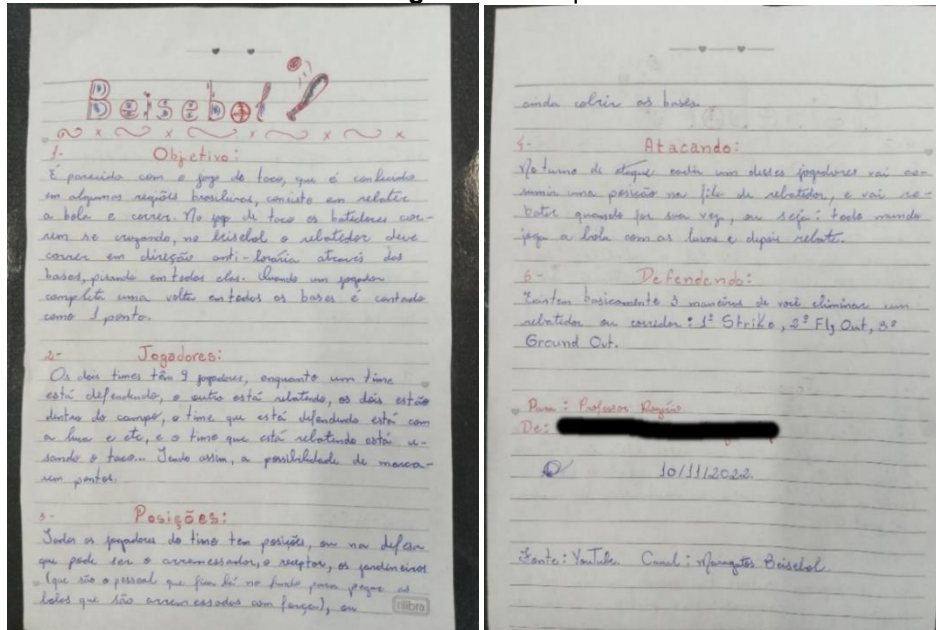 Beisebol
1- Objetivo:
É parecido com o jogo de taco, que é conhecido
em algumas regiões brasileiras, consiste em rebater
a bola e correr. No jogo de taco os batedores cor-
rem se cruzando, no beisebol o rebatedor deve
correr em direção anti-horária através das
bases, pisando em todas elas. Quando um jogador
completa uma volta em todas as bases é contado
como 1 ponto.
2- Jogadores:
Os dois times têm 9 jogadores, enquanto um time
está defendendo, o outro está rebatendo, os dois estão
dentro do campo, o time que está defendendo está com
a luva e etc, e o time que está rebatendo está u-
sando o taco... Sendo assim, a possibilidade de marca-
rem pontos.
3- Posições:
Todos os jogadores do time tem posições, ou na defesa
que pode ser o arremessador, o receptor, os jardineiros
(que são o pessoal que fica lá no fundo para pegar as
bolas que são arremessadas com força), ou
tilibra
ainda cobrir as bases.
4- Atacando:
No turno de ataque cada um desses jogadores vai as-
sumir uma posição na fila de rebatedor, e vai re-
bater quando for sua vez, ou seja: todo mundo
joga a bola com as luvas e depois rebate.
5- Defendendo:
Existem basicamente 3 maneiras de você eliminar um
rebatedor ou corredor: 1º Strike, 2º Fly Out, 3º
Ground Out.
Para: Professor
De:
10/11/2022
Fonte: YouTube Canal: Maragatos Beisebol.